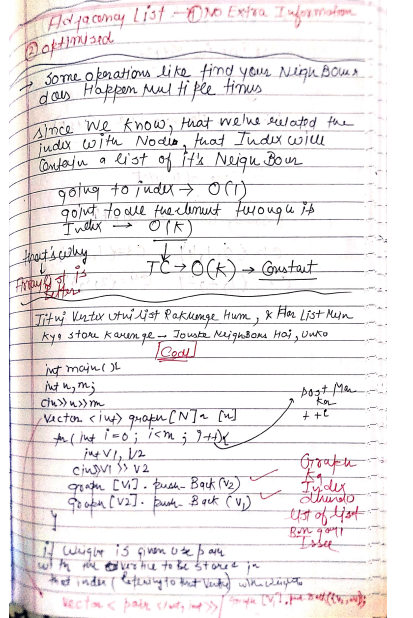 Adjacency List → ① No Extra Information
② optimised
→ Some operations like find your NeighBours
does Happen multiple times
since we know, that we've related the
index with Nodes, that Index will
Contain a list of it's NeighBour
going to index → O(1)
goint to all the element through is
Index → O(K)
that's why
TC → O(K) → Constant
Array of is
better
Jitni Vertex utni list Rakhenge Hum, & Har List Mein
Kya store karenge → Jouske NeighBours Hai, unko
Code
int main(){
int n, m;
cin>>n>>m
vector <int> graph [N]
for (int i=0; i<m; i++){
post
++
int v1, v2
cin>>v1>>v2
graph [v1]. push_Back (v2)
graph [v2]. push_Back (v1)
}
Graph
Ka
Index
List of list
Ban gayi
Isse
if weight is given use pair
with the vertice to be stored in
that index (Referring to that vertex) with weights
vector < pair <int, int>>